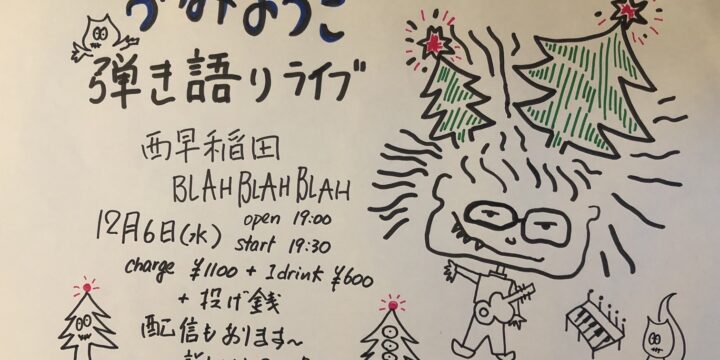 弾き語りライブ
西早稲田
BLAH BLAH BLAH
12月6日(水) open 19:00
start 19:30
charge ¥1100 + 1drink ¥600
+ 投げ銭
配信もあります〜